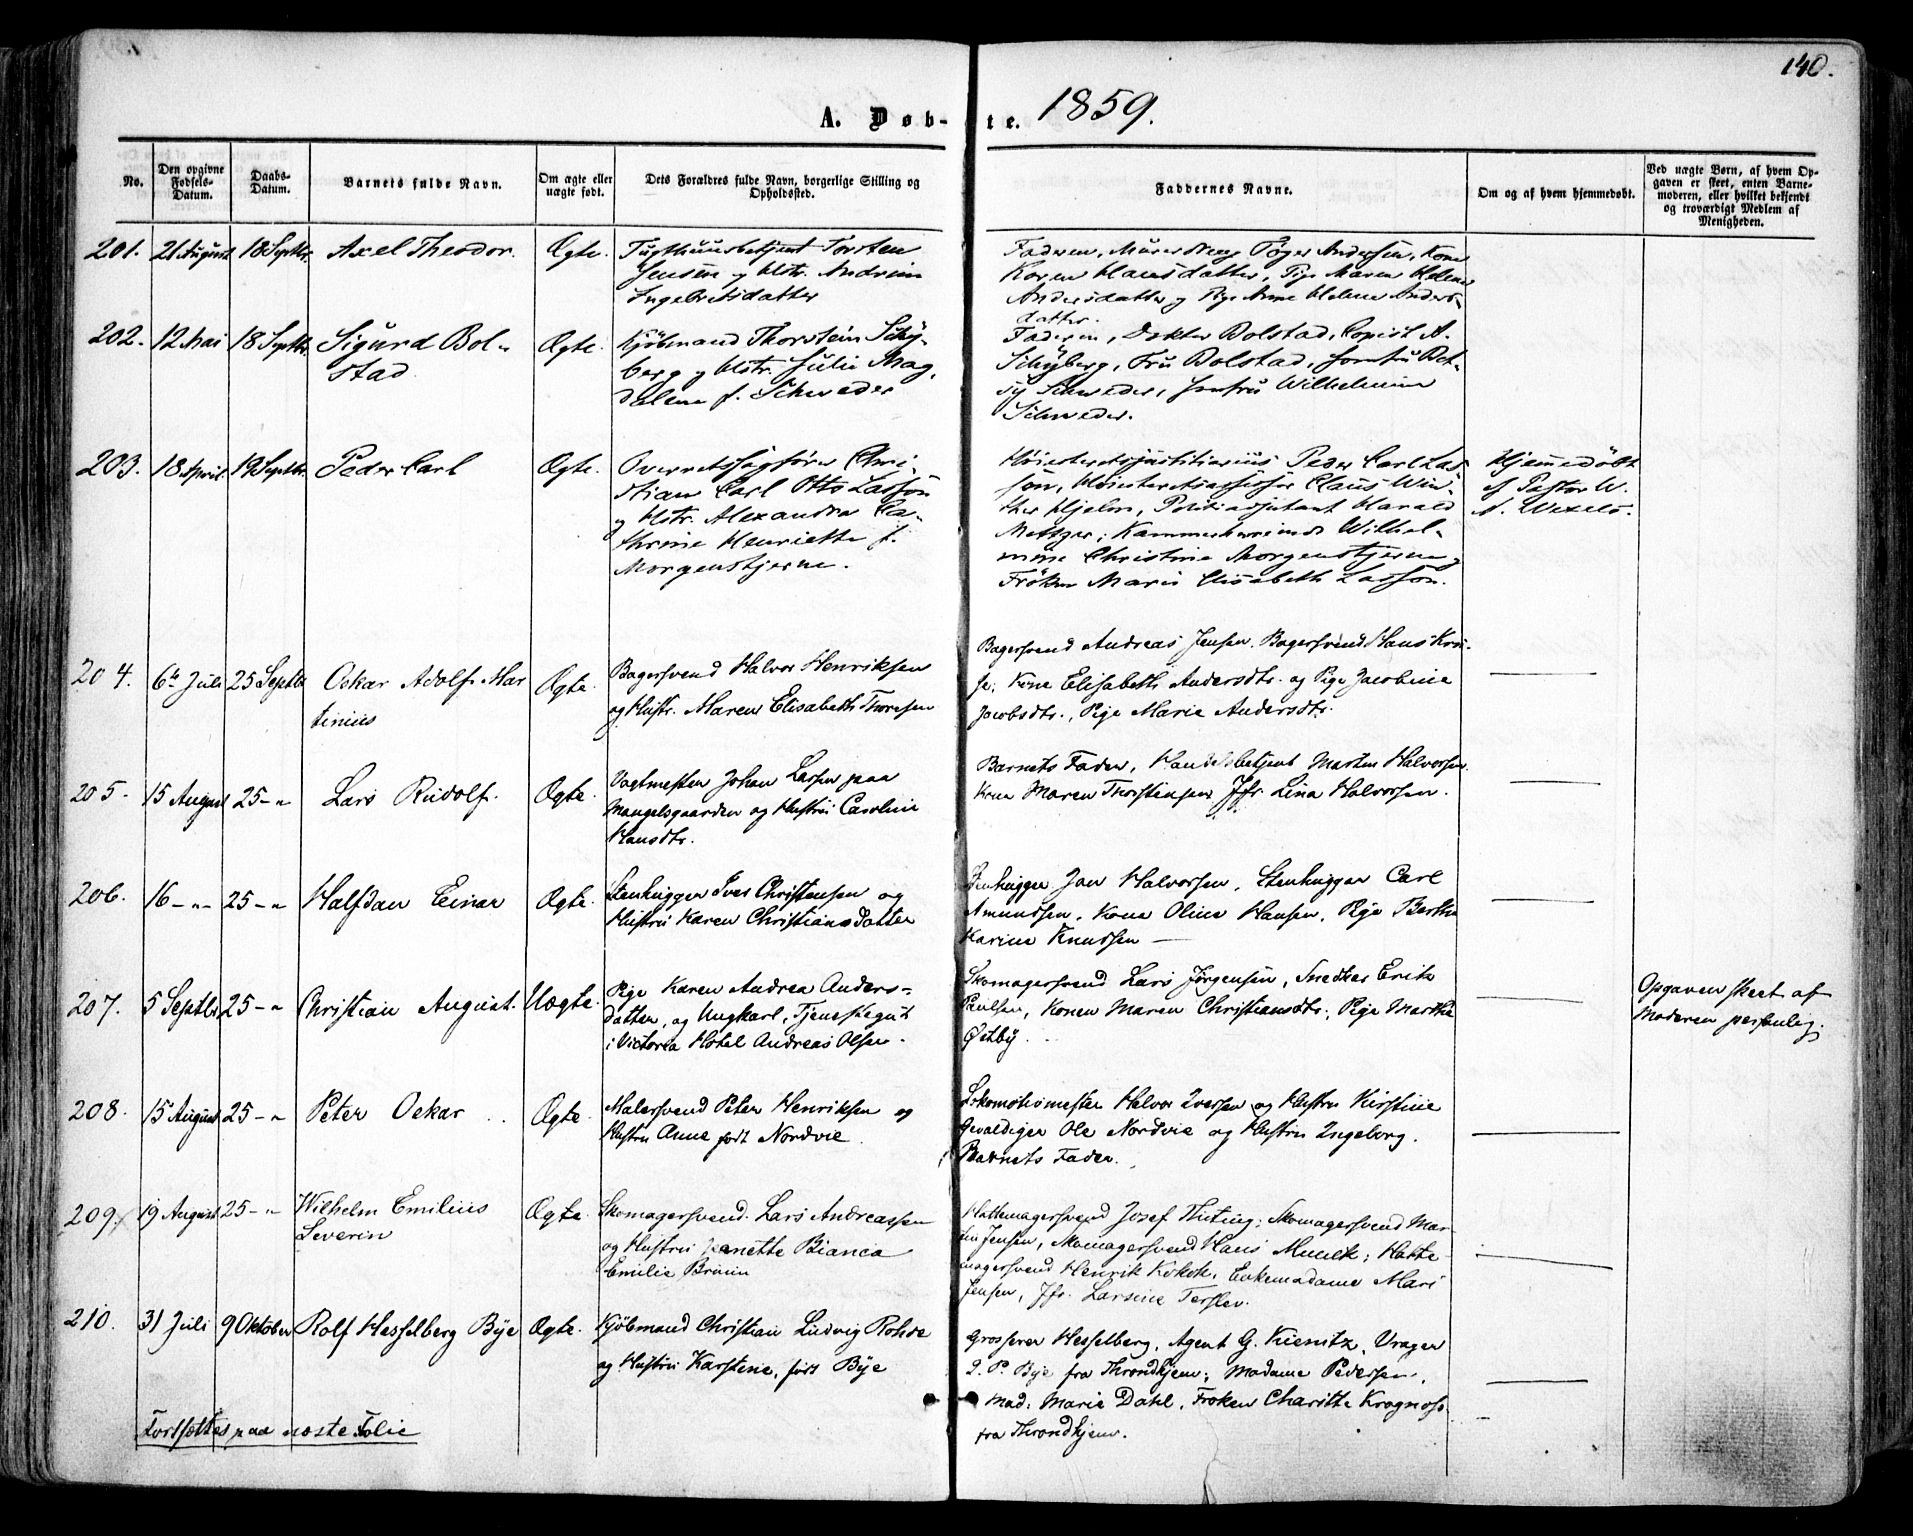 140.
A. Døb- te. 1859.
No.
Den opgivne Fødsels-Datum.
Daabs-Datum.
Barnets fulde Navn.
Om ægte eller uægte født.
Dets Forældres fulde Navn, borgerlige Stilling og Opholdssted.
Faddernes Navne.
Om og af hvem hjemmedøbt.
Ved uægte Børn, af hvem Opgaven er skeet, enten Barnemoderen, eller hvilket bekjendt og troværdigt Medlem af Menigheden.
201. 21 August 18 Septbr. Axel Theodor. Ægte. Tugthuusbetjent Torsten
Jensen og Hstr. Andrine
Ingebretsdatter
Faderen, Murersvend Andersen, Kone
Karen Hansdatter, Pige Maren Helene
Andersdatter og Pige Anne Helene Anders-
datter.
202. 12 Mai 18 Septbr. Sigurd Bol-
stad Ægte. Kjøbmand Thorstein Schy-
berg og Hstr. Julie Mag-
dalene f. Schweder
Faderen, Doktor Bolstad, Copist A.
Schyberg, Fru Bolstad, Jomfru Bet-
sy Schweder, Jomfru Wilhelmine
Schweder.
203. 18 April 19 Septbr. Peder Carl Ægte. Overretssagfører Chri-
stian Carl Otto Lasson
og Hstr. Alexandra Ca-
thrine Henriette f.
Morgenstjerne.
Høiesteretsjustitiarius Peder Carl Las-
son, Høiesteretsassessor Claus Win-
ther Hjelm, Politiadjutant Harald
Mettger, Kammerherreinde Wilhel-
mine Christine Morgenstjerne,
Frøken Marie Elisabeth Lasson.
Hjemmedøbt
af Pastor W.
A. Wexels.
204. 6te Juli 25 Septbr Oskar Adolf Mar
tinius Ægte. Bagersvend Halvor Henriksen
og Hustr. Maren Elisabeth Thoresen
Bagersvend Andreas Jensen, Bagersvend Hans
Kone Elisabeth Andersdtr. og Pige Jacobine
Jacobsdtr., Pige Marie Andersdtr.
205. 15 August 25 - " Lars Rudolf. Ægte. Vagtmester Johan Larsen paa
Mangelsgaarden og Hustru Caroline
Hansdtr.
Barnets Fader, Handelsbetjent Martin Halvorsen.
Kone Maren Thorstensen Jfr. Lina Halvorsen.
206. 16 - " - 25 - " Halfdan Einar Ægte. Stenhugger Iver Christensen og
Hustru Karen Christiansdatter
Stenhugger Jan Halvorsen, Stenhugger Carl
Amundsen, Kone Oline Hansen, Pige Berthe
Karine Knudsen —
207. 5 Septbr. 25 - " Christian August. Uægte. Pige Karen Andrea Anders-
datter, og Ungkarl, Tjenestegut
i Victoria Hotel Andreas Olsen.
Skomagersvend Lars Jørgensen, Snedker Erik
Paulsen, Konen Maren Christiansdtr., Pige Marthe
Østby.
Opgaven skeet af
Moderen personlig.
208. 15 August 25 - " Peter Oskar Ægte. Malersvend Peter Henriksen og
Hustru Anne født Nordvie.
Lokomotivmester Halvor Iversen og Hustru Kirstine
Gevaldiger Ole Nordvie og Hustru Ingeborg.
Barnets Fader.
209. 19 August 25 - " Wilhelm Emilius
Severin Ægte. Skomagersvend. Lars Andreassen
og Hustru Jeanette Bianca
Emilie Bruun
Hattemagersvend Josef; Skomagersvend Mar
Jensen, Skomagersvend Hans Munck; Hatte-
magersvend Henrik, Enkemadame Mari
Jensen, Jfr. Larsine Terslev.
210. 31 Juli 9 Oktober Rolf Hesselberg Bye Ægte. Kjøbmand Christian Ludvig Rohde
og Hustru Karstine, født Bye
Grosserer Hesselberg, Agent G. Kienitz, Vrager
P. Bye fra Throndhjem; Madame Pedersen,
Mad. Marie Dahl, Frøken Charitte
fra Throndhjem.
Fortsættes paa næste Folie